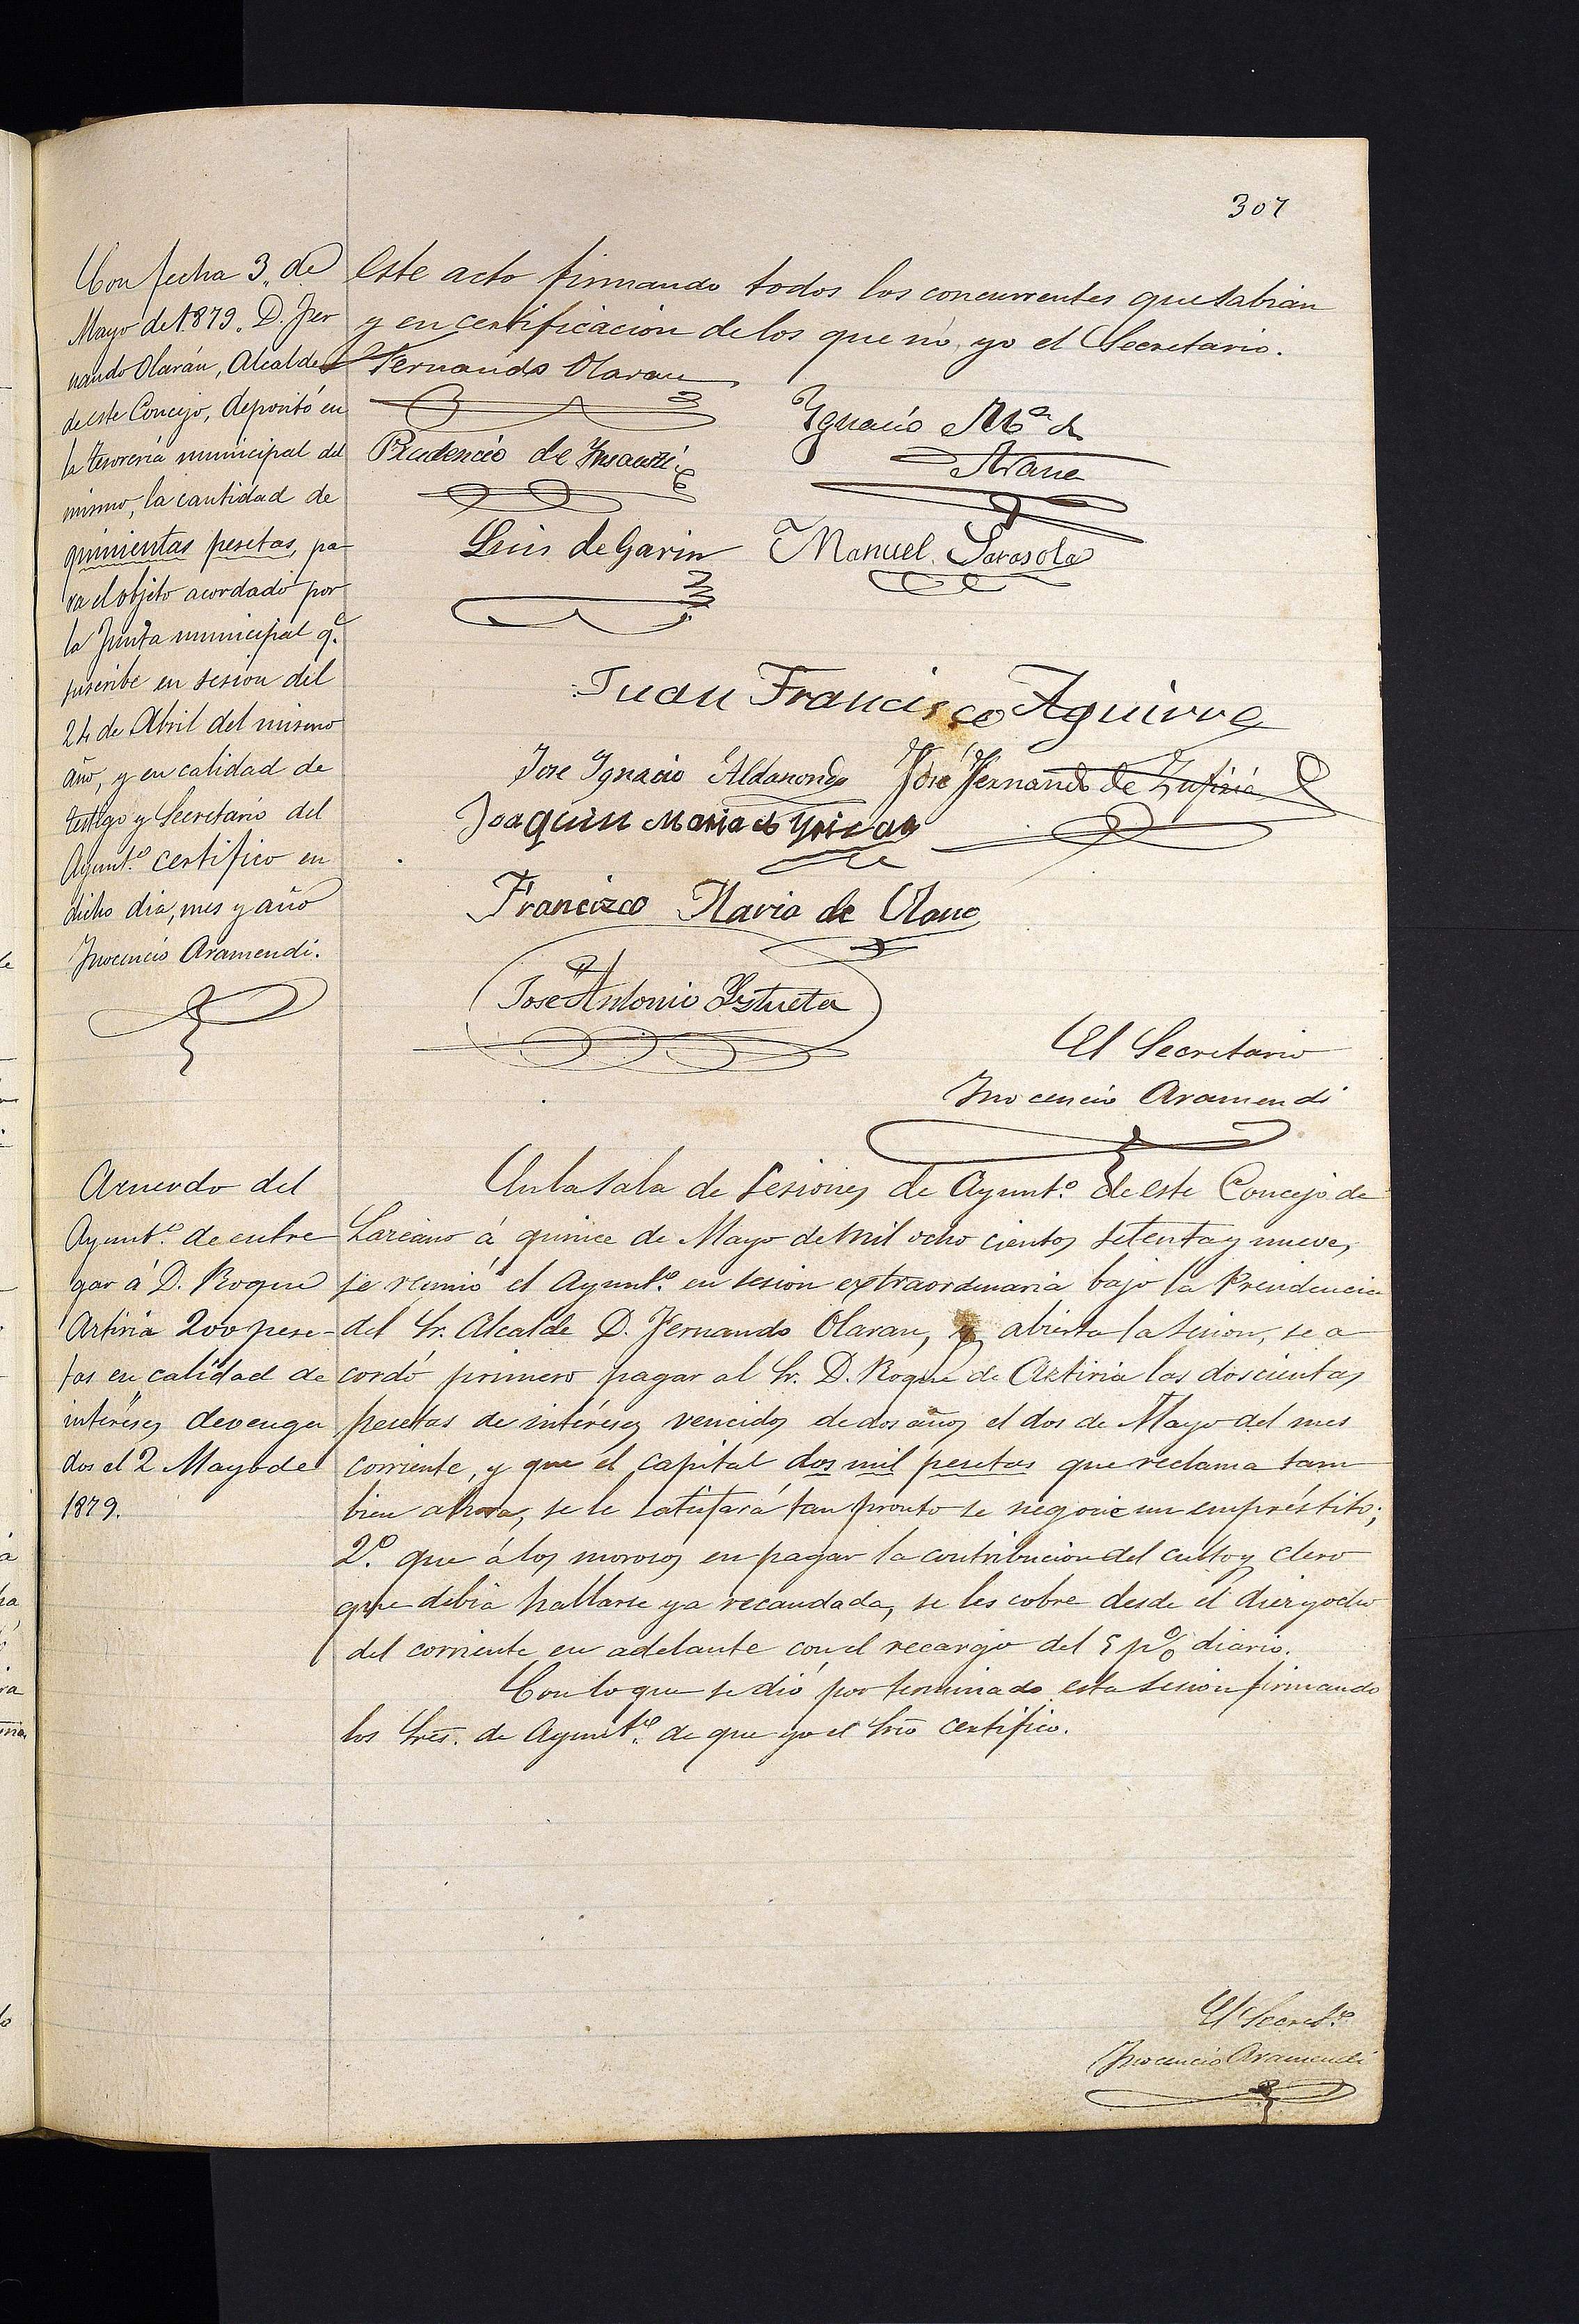 307
Con fecha 3, de
Mayo de 1879. D. Fer
nando Olarán, Alcalde
de este Concejo, depositó en
la tesorería municipal del
mismo, la cantidad de
quinientas pesetas, pa-
ra el objeto acordado por
la Junta municipal q.e
suscribe en sesion del
24 de Abril del mismo
año, y en calidad de
testigo y Secretario del
Ayunt.o certifico en
dicho dia, mes y año
Inocencio Aramendi.
este acto firmando todos los concurrentes que sabian
y en certificacion de los que nó, yo el Secretario.
Fernando Olaran
Ignacio M.a de
Arana
Prudencio de Insausti
Luis de Garin Manuel Sarasola
Juan Francisco Aguirre
Jose Ignacio Aldanondo José Fernando de Zufiria
Joaquin Maria de Yrizar
Francizco Maria de Olano
Jose Antonio Yztueta
El Secretario
Inocencio Aramendi
Acuerdo del
Ayunt.o de entre
gar á D. Roque
Artiria 200 pese-
tas en calidad de
intéreses devenga
dos el 2 Mayo de
1879.
En la sala de Sesiones de Ayunt.o de este Concejo de
Lazcano á quince de Mayo de mil ocho cientos setenta y nueve,
se reunió el Ayunt.o en sesion extraordinaria bajo la Presidencia
del Sr. Alcalde D. Fernando Olaran, y abierta la sesion, se a
cordó primero pagar al Sr. D. Roque de Artiria las doscientas
pesetas de intéreses vencidos de dos años el dos de Mayo del mes
corriente, y que el capital dos mil pesetas que reclama tam
bien ahora, se le satisfará tan pronto se negocie un empréstito;
2.o que á los morosos en pagar la contribucion del culto y clero
que debia hallarse ya recaudada, se les cobre desde el diez y ocho
del corriente en adelante con el recargo del 5 p% diario.
Con lo que se dió por terminada esta sesion firmando
los Sres. de Ayunt.o de que yo el Srio certifico.
El Secret.o
Inocencio Aramendi